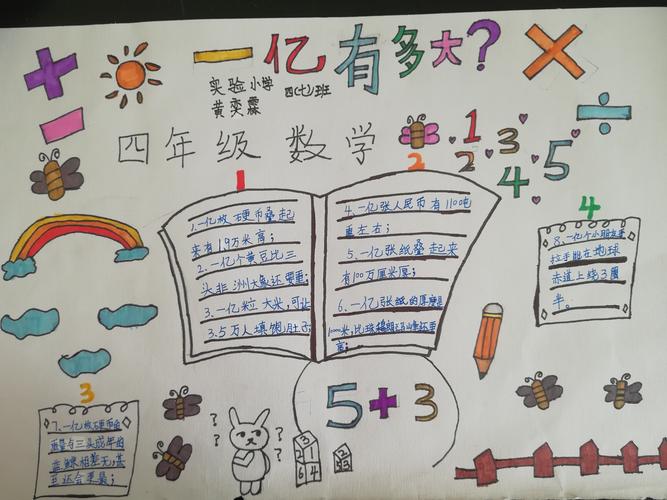 一亿有多大?
实验小学 四(七)班
黄奕霖
四年级 数学
1
2
1 2 3 4 5
1.一亿枚硬币叠起
来有19万米高;
2.一亿个黄豆比三
头非洲大象还要重;
3.一亿粒大米,可让
3.5万人填饱肚子;
4.一亿张人民币有110吨
重左右;
5.一亿张纸叠起来
有100万厘米厚;
6.一亿张纸的厚度是
1000米,比珠穆朗玛峰还要
高;
4
8.一亿个小朋友手
拉手能在地球
赤道上绕3圈
半。
3
7.一亿枚硬币的
质量与三头成年的
蓝鲸相差无,甚
至还会更重;
5+3
? ? ? ?
3
2 1
6 4
2
5 3